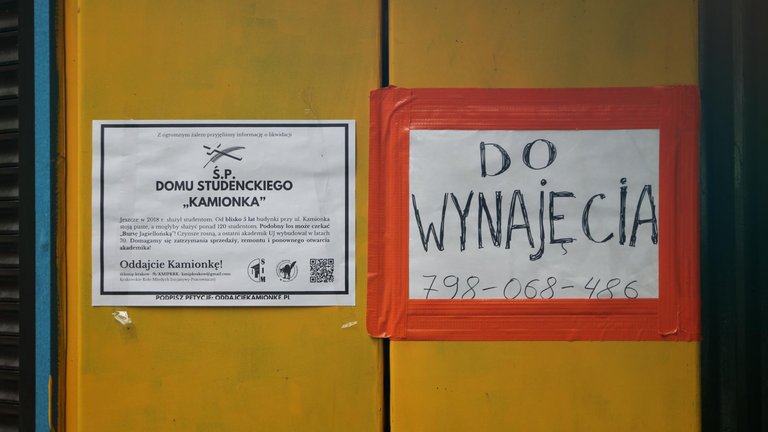 Z ogromnym żalem przyjęliśmy informację o likwidacji
Ś.P.
DOMU STUDENCKIEGO
„KAMIONKA”
Jeszcze w 2018 r. służył studentom. Od blisko 5 lat budynki przy ul. Kamionka
stoją puste, a mogłyby służyć ponad 120 studentom. Podobny los może czekać
"Bursę Jagiellońską"! Czynsze rosną, a ostatni akademik UJ wybudował w latach
70. Domagamy się zatrzymania sprzedaży, remontu i ponownego otwarcia
akademika!
Oddajcie Kamionkę!
Krakowskie Koło Młodych Inicjatywy Pracowniczej
PODPISZ PETYCJĘ: ODDAJCIEKAMIONKE.PL
DO
WYNAJĘCIA
798-068-486